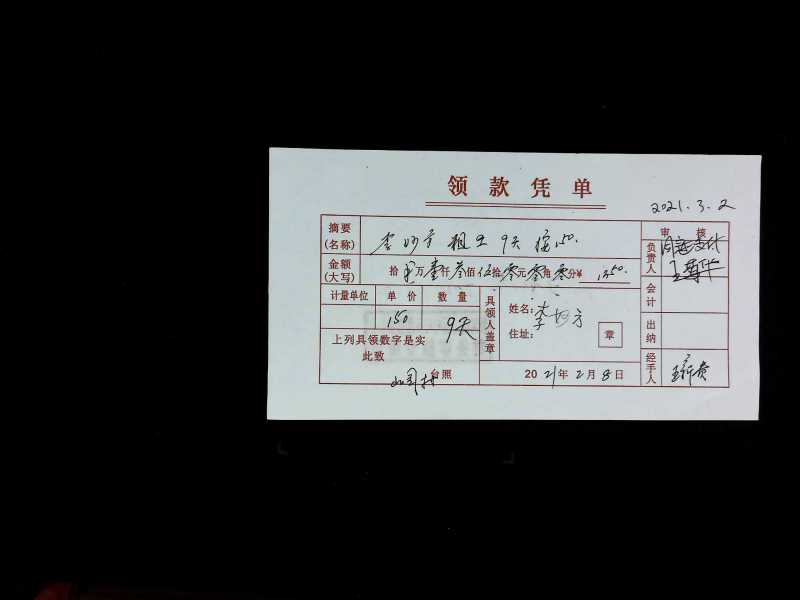 领款凭单
2021.3.2
摘要(名称) 9天 150. 审核
金额(大写) 拾 万壹仟叁佰伍拾零元零角零分¥ 1350. 负责人 同意支付
计量单位 单价 数量 具领人盖章 姓名: 李 方 会计
150 9天 住址: 章 出纳
上列具领数字是实
此致 经手人
台照 2021年2月8日